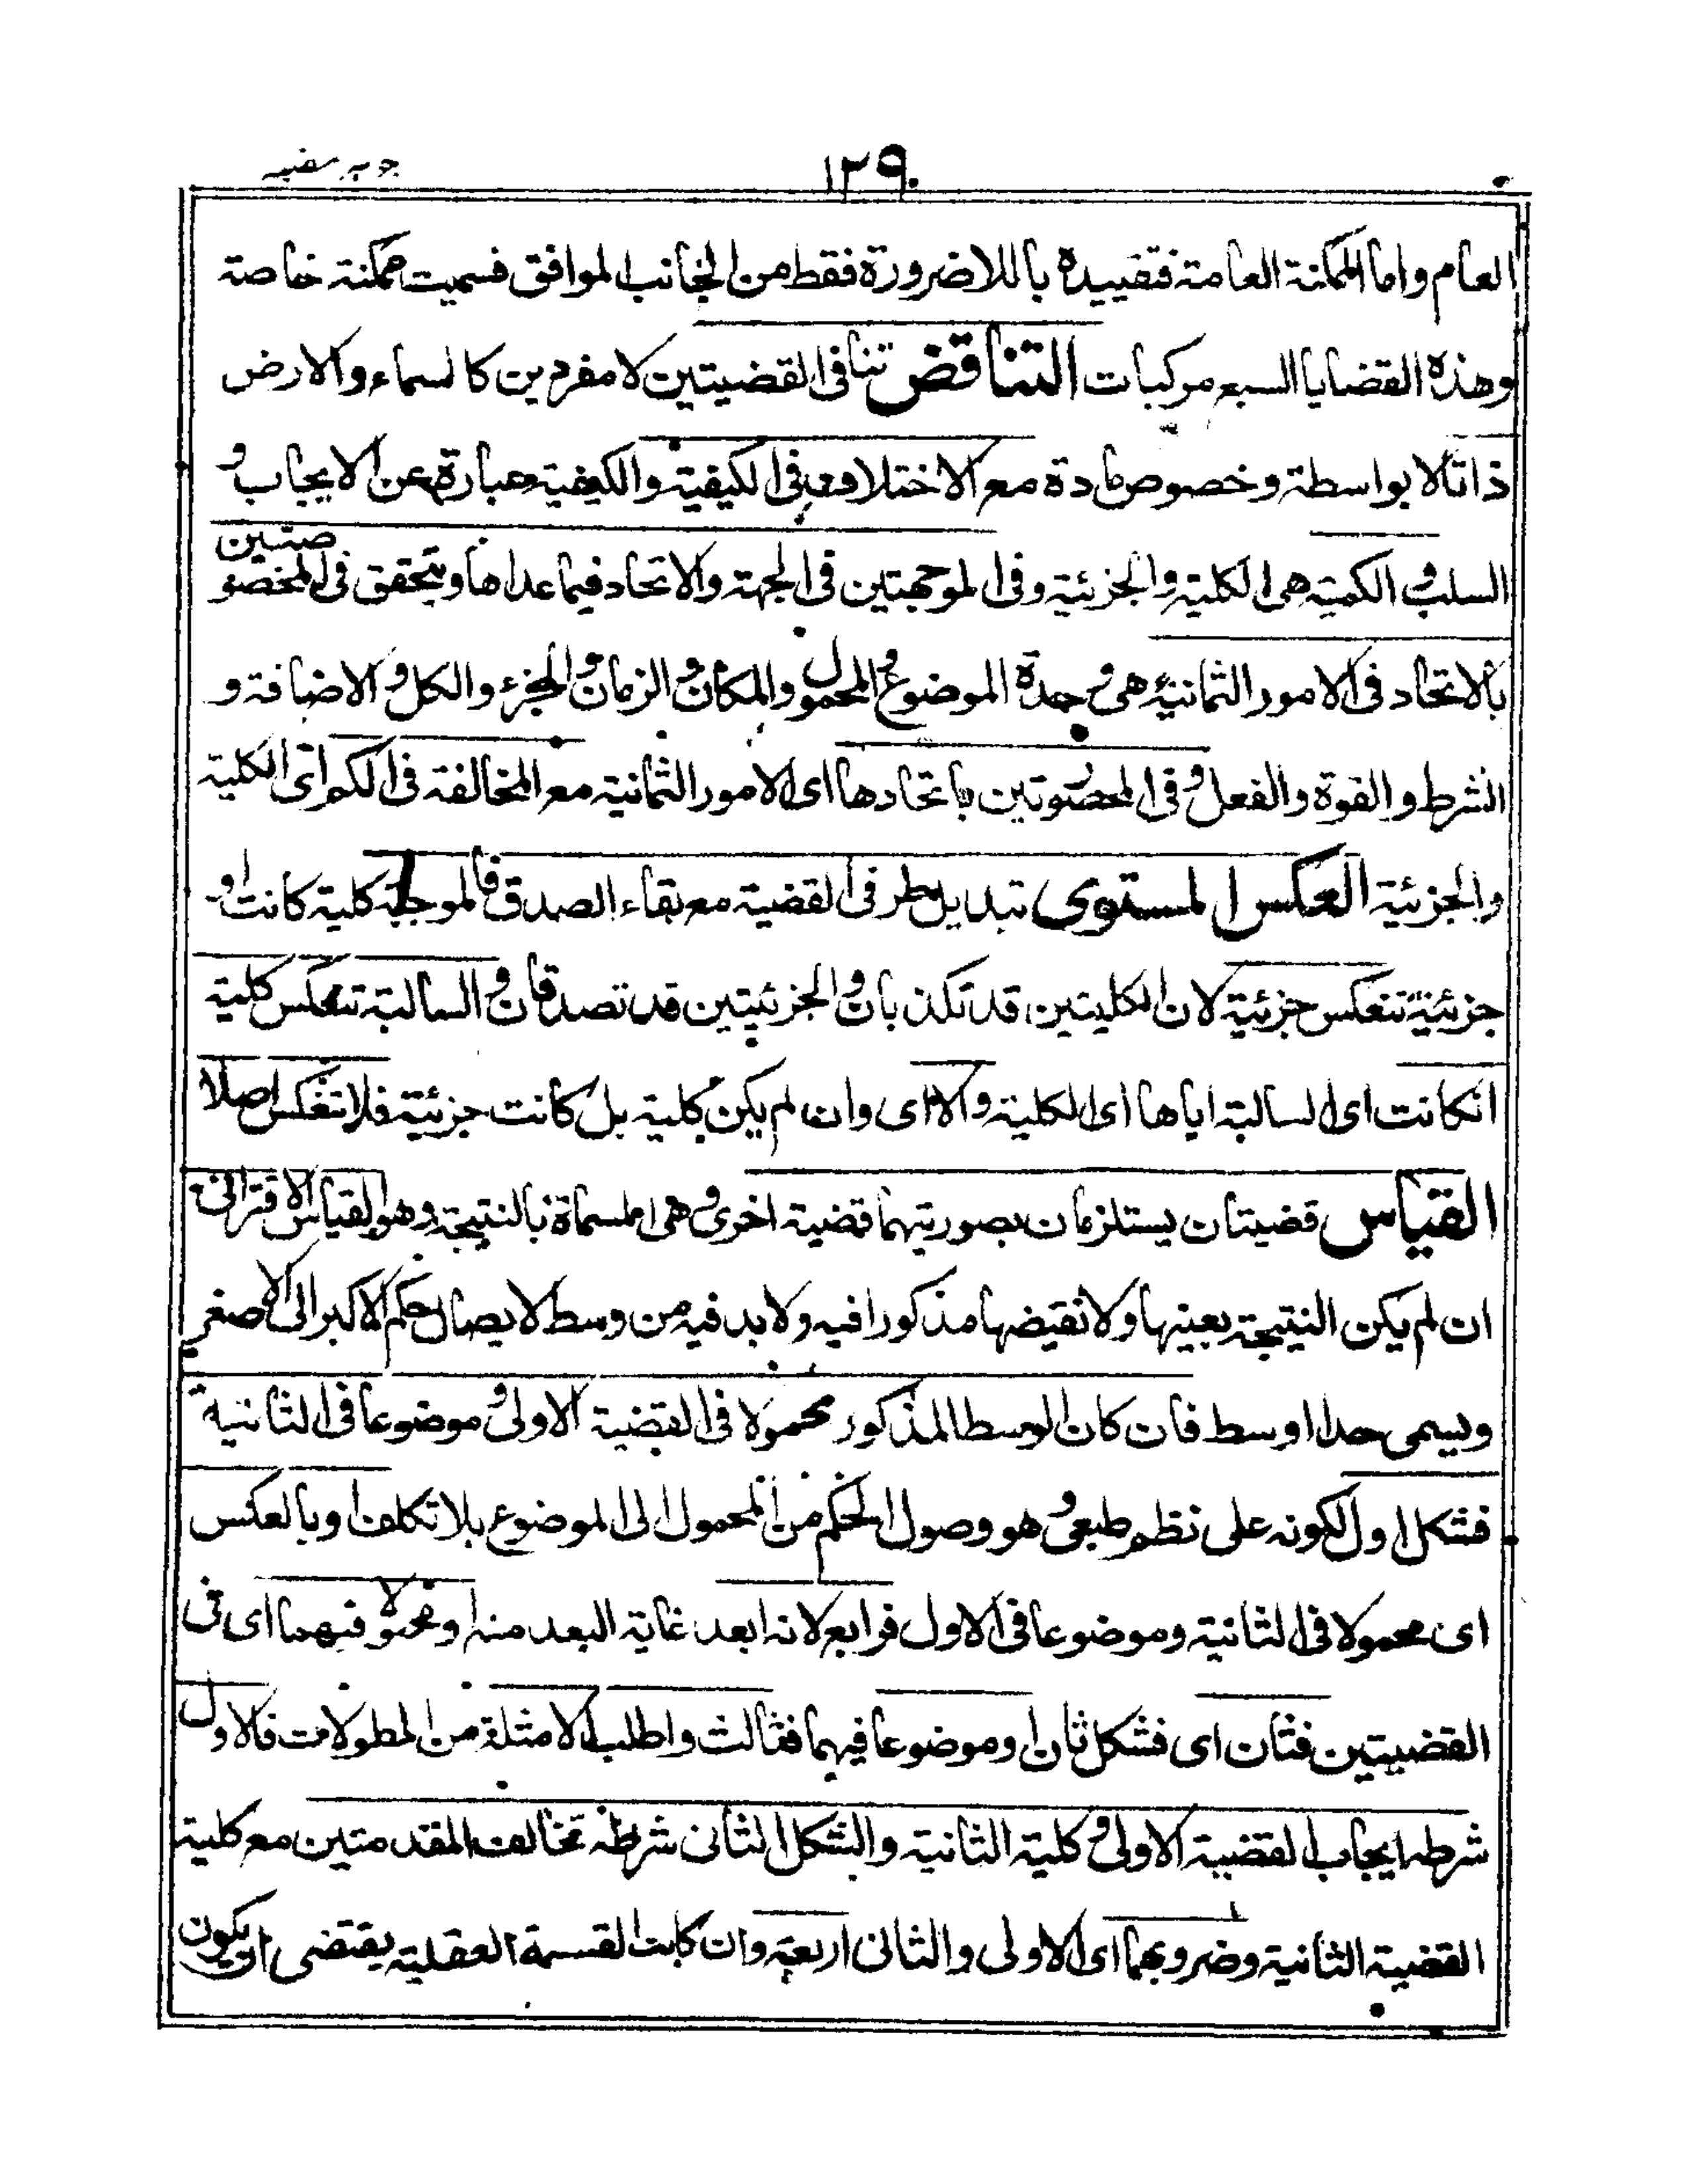 ١٣٩
العام واما الممكنة العامة فتقييده باللاضرورة فقط من الجانب الموافق فسميت ممكنة خاصة
وهذه القضايا السبع مركبات التناقض تنافى القضيتين لا مفردين كالسماء والارض
ذاتا لا بواسطة وخصوص مادة مع الاختلاف فى الكيفية والكيفية عبارة عن الايجاب و
السلب و الكمية هى الكلية والجزئية وفى الموجهتين فى الجهة والاتحاد فيما عداها ويتحقق فى المخصوصتين
بالاتحاد فى الامور الثمانية هى وحدة الموضوع و المحمول والمكان و الزمان و الجزء والكل و الاضافة و
الشرط والقوة والفعل و فى المحصورتين باتحادها اى الامور الثمانية مع المخالفة فى الكم اى الكلية
والجزئية العكس المستوى تبديل طرفى القضية مع بقاء الصدق فالموجبة كلية كانت او
جزئية تنعكس جزئية لان الكليتين قد تكذبان و الجزئيتين قد تصدقان و السالبة تنعكس كلية
انكانت اى السالبة اياها اى الكلية والا اى وان لم يكن كلية بل كانت جزئية فلا تنعكس اصلا
القياس قضيتان يستلزمان بصورتيهما قضية اخرى و هى المسماة بالنتيجة وهو القياس الاقترانى
ان لم يكن النتيجة بعينها ولا نقيضها مذكورا فيه ولا بد فيه من وسط لايصال حكم الاكبر الى الاصغر
ويسمى حدا اوسط فان كان الوسط المذكور محمولا فى القضية الاولى و موضوعا فى الثانية
فشكل اول لكونه على نظم طبعى و هو وصول الحكم من المحمول الى الموضوع بلا تكلف او بالعكس
اى محمولا فى الثانية وموضوعا فى الاول فرابع لانه ابعد غاية البعد منه او محمولا فيهما اى فى
القضيتين فثان اى فشكل ثان او موضوعا فيهما فثالث واطلب الامثلة من المطولات فالاول
شرطه ايجاب القضية الاولى و كلية الثانية والشكل الثانى شرطه تخالف المقدمتين مع كلية
القضية الثانية وضروبهما اى الاولى والثانى اربعة وان كانت القسمة العقلية يقتضى ان يكون